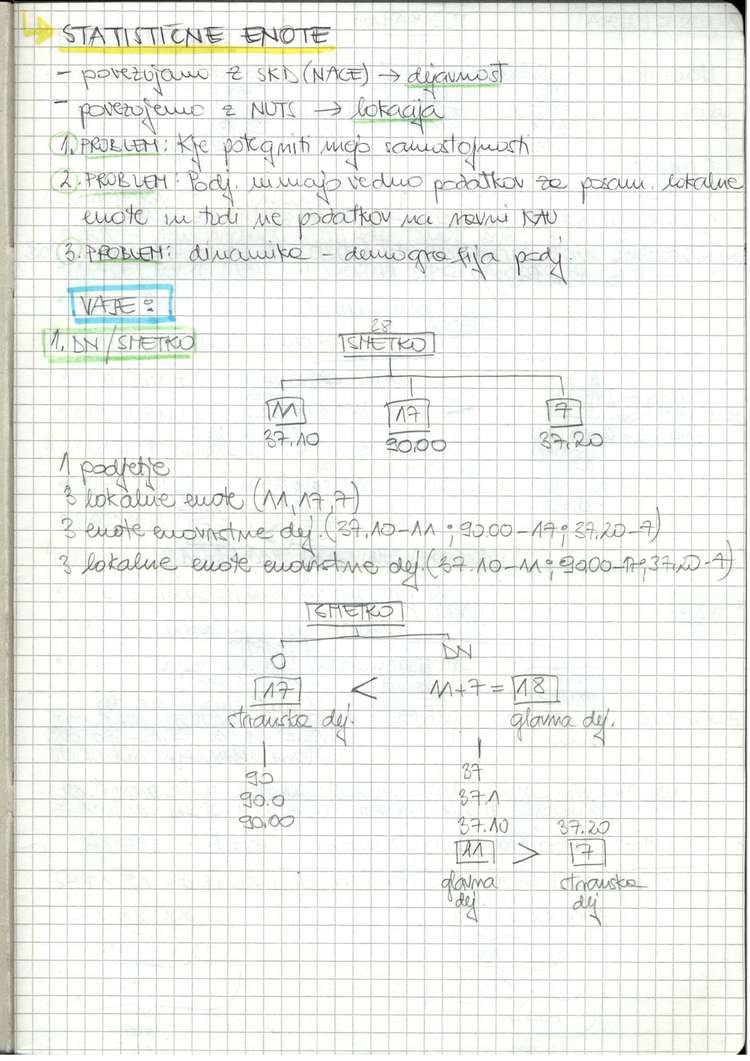 STATISTIČNE ENOTE
- povezujamo z SKD (NACE) → dejavnost
- povezujemo z NUTS → lokacija
1. PROBLEM: Kje potegniti mejo samostojnosti
2. PROBLEM: Podj. nimajo vedno podatkov za posam. lokalne
enote in tudi ne podatkov na ravni KAU
3. PROBLEM: dinamika - demografija podj.
VAJE:
1. DN/SMETKO
28
SMETKO
11 17 7
37.10 90.00 37.20
1 podjetje
3 lokalne enote (11, 17, 7)
3 enote enovrstne dej. (37.10-11; 90.00-17; 37.20-7)
3 lokalne enote enovrstne dej. (37.10-11; 90.00-17; 37.20-7)
SMETKO
O DN
17 < 11+7=18
stranska dej. glavna dej.
90 37
90.0 37.1
90.00 37.10 37.20
11 > 7
glavna stranska
dej dej